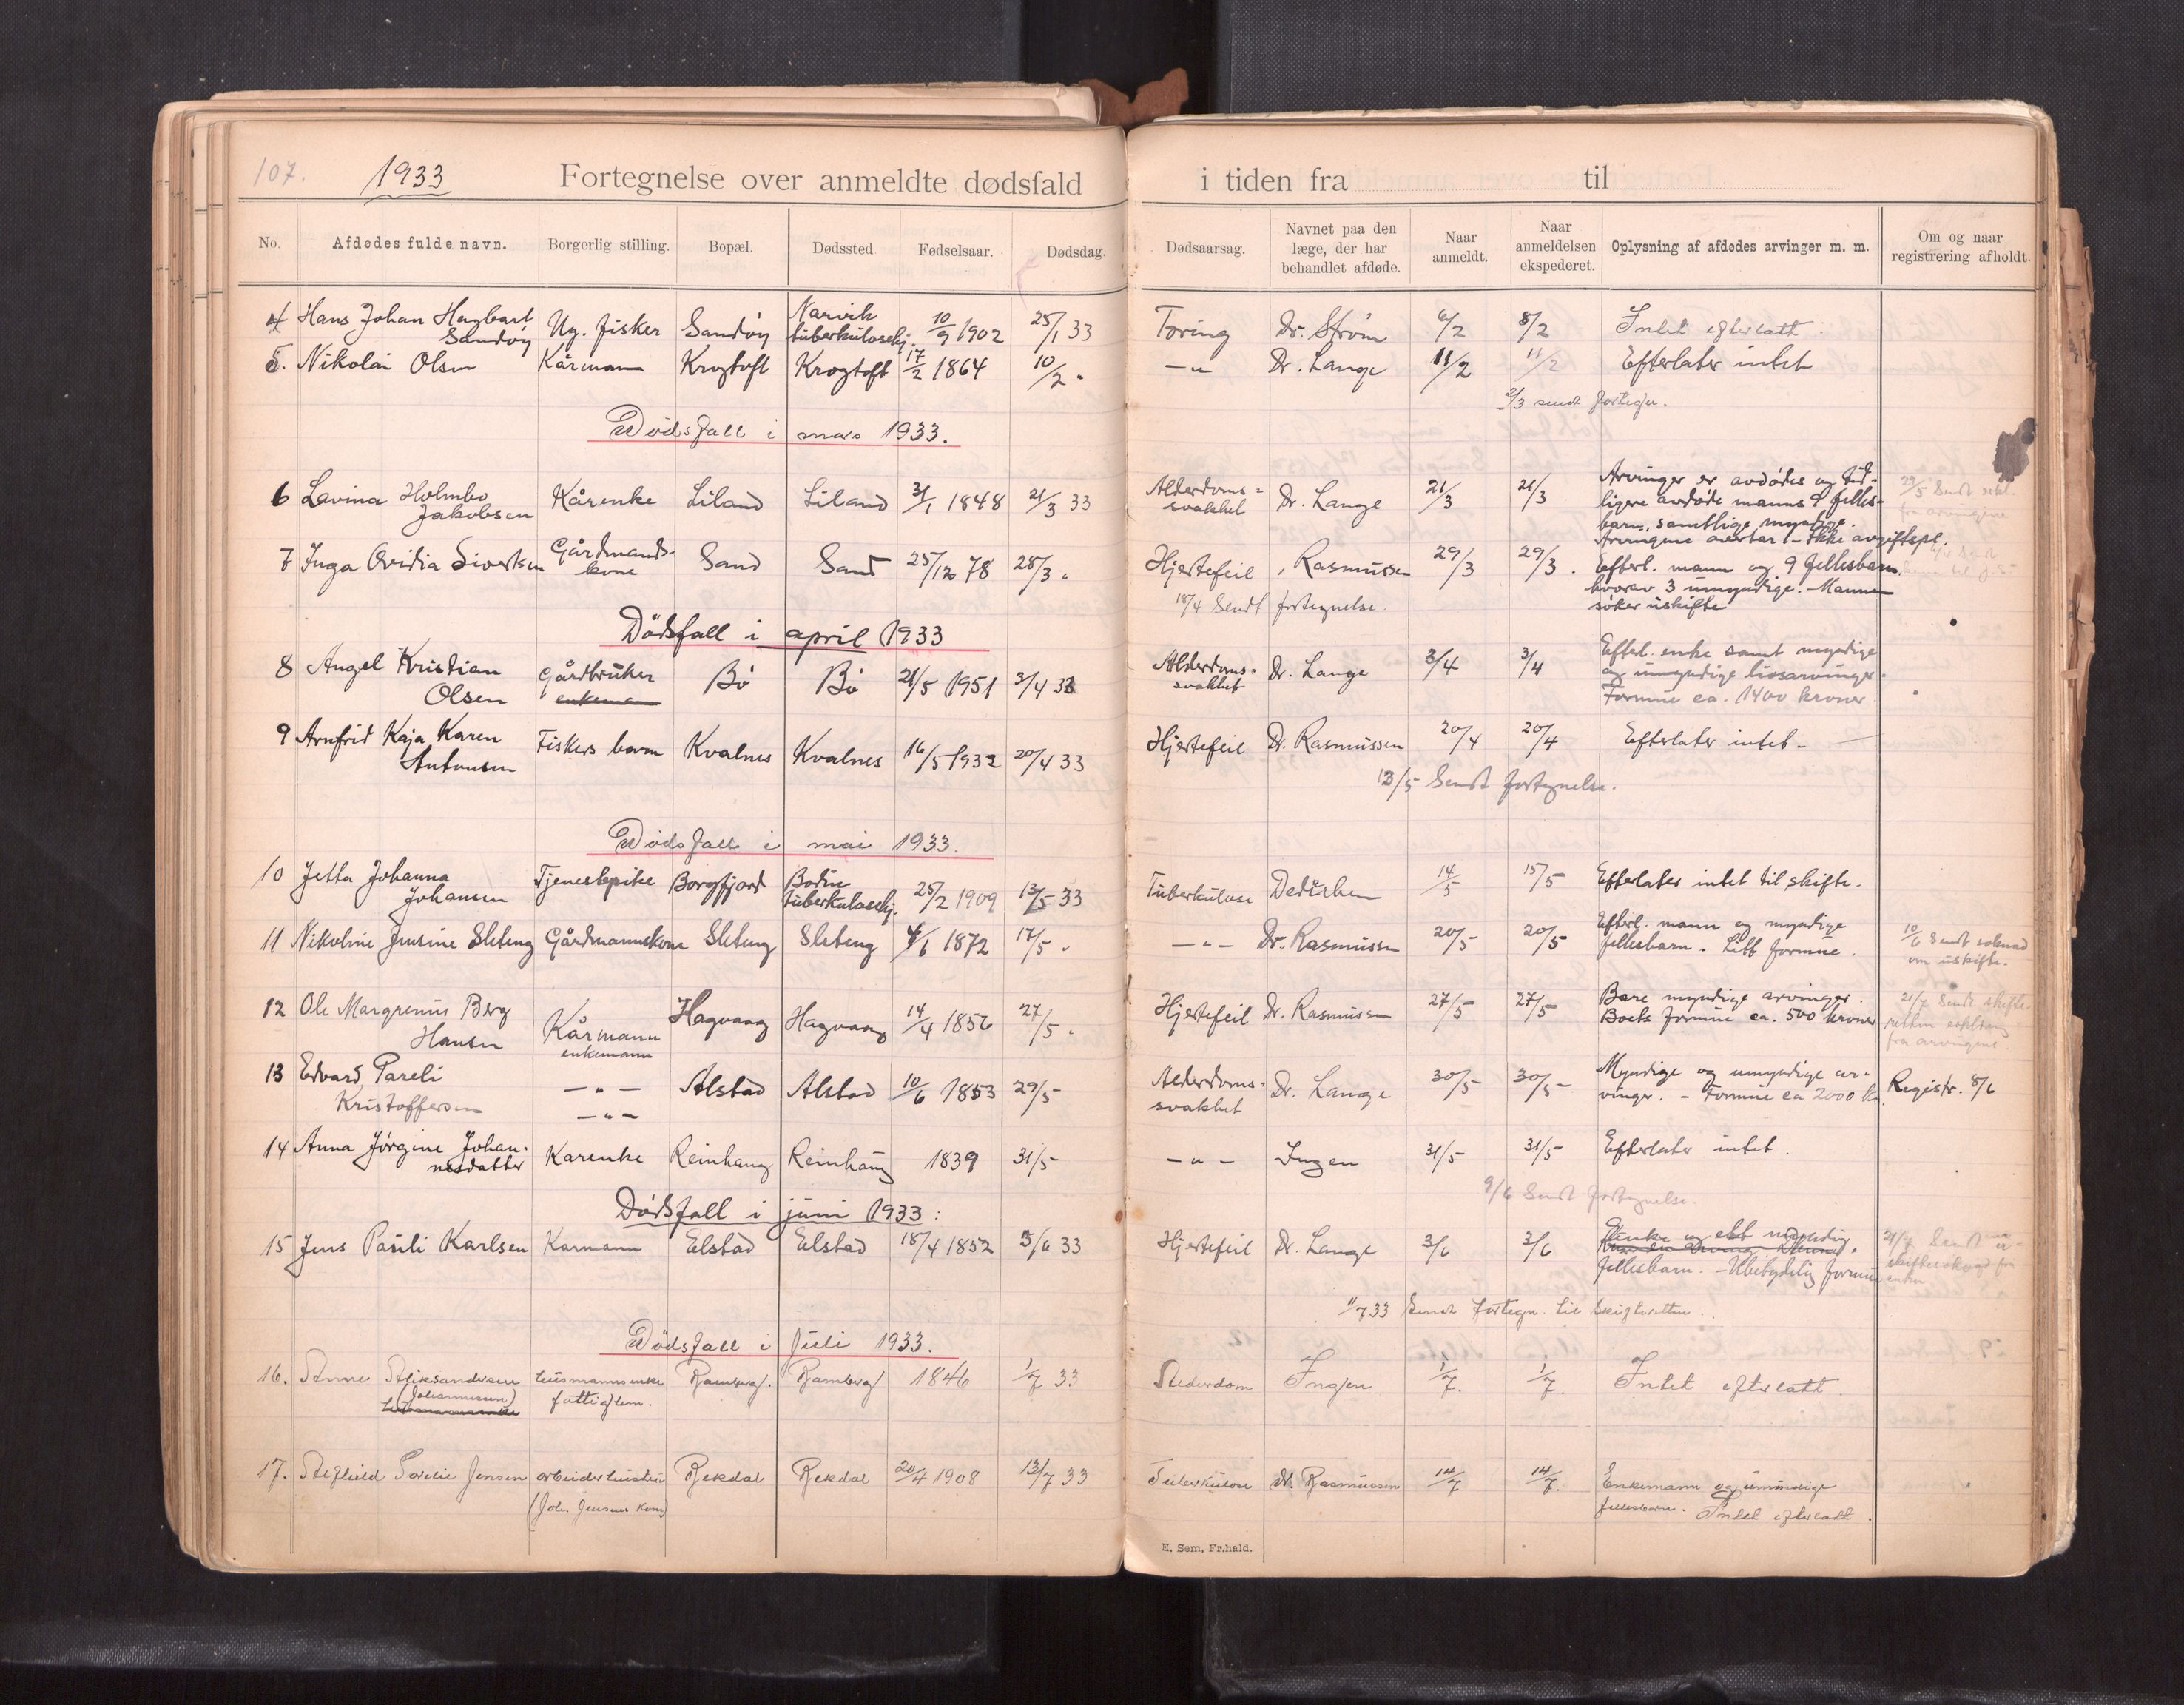 107. 1933 Fortegnelse over anmeldte dødsfald i tiden fra til
No. Afdødes fulde navn. Borgerlig stilling. Bopæl. Dødssted Fødselsaar. Dødsdag. Dødsaarsag. Navnet paa den læge, der har behandlet afdøde. Naar anmeldt. Naar anmeldelsen ekspederet. Oplysning af afdødes arvinger m. m. Om og naar registrering afholdt.
4 Hans Johan Hagbart Sandøy Ug. fisker Sandøy Narvik tuberkulosehj. 10/9 1902 25/1 33 Tæring Dr. Strøm 6/2 8/2 Intet efterlatt.
5. Nikolai Olsen Kårmann Krogtoft Krogtoft 17/2 1864 10/2 " — " — Dr. Lange 11/2 11/2 Efterlater intet
2/3 sendt fortegn.
Dødsfall i mars 1933.
6 Lavina Holmbo Jakobsen Kårenke Liland Liland 31/1 1848 21/3 33 Alderdoms= svakhet Dr. Lange 21/3 21/3 Arvinger er avdødes og tid-
ligere avdøde manns 9 felles-
barn, samtlige myndige.
Arvingene overtar - Ikke avgiftspl.
7 Inga Ovidia Sivertsen Gårdmands- kone Sand Sand 25/12 78 28/3 " Hjertefeil , Rasmussen 29/3 29/3. Efterl. mann og 9 fellesbarn,
hvorav 3 umyndige. - Mannen
søker uskifte
18/4 Sendt fortegnelse.
Dødsfall i april 1933
8 Angel Kristian Olsen Gårdbruker enkemann Bø Bø 21/5 1951 3/4 33 Alderdoms- svakhet Dr. Lange 3/4 3/4 Efterl. enke samt myndige
og umyndige livsarvinger.
Formue ca. 1400 kroner
9 Arnfrid Kaja Karen Antonsen Fiskers barn Kvalnes Kvalnes 16/5 1932 20/4 33 Hjertefeil Dr. Rasmussen 20/4 20/4 Efterlater intet -
13/5 Sendt fortegnelse.
Dødsfall i mai 1933.
10 Jetta Johanna Johansen Tjenestepike Borgfjord Bodin tuberkulosehj. 25/2 1909 13/5 33 Tuberkulose Dedichen 14/5 15/5 Efterlater intet til skifte.
11 Nikoline Jensine Sleteng Gårdmannskone Sleteng Sleteng 4/1 1872 17/5 " — " — Dr. Rasmussen 20/5 20/5 Efterl. mann og myndige
fellesbarn - Litt formue. 10/6 Sendt søknad
om uskifte.
12 Ole Margrenius Berg Hansen Kårmann enkemann Hagvaag Hagvaag 14/4 1856 27/5 " Hjertefeil Dr. Rasmussen 27/5 27/5 Bare myndige arvinger.
Boets formue ca. 500 kroner 21/7 Sendt skifte-
retten erklæring
fra arvingene.
13 Edvard Pareli Kristoffersen — " — — " — Alstad Alstad 10/6 1853 29/5 Alderdoms- svakhet Dr. Lange 30/5 30/5 Myndige og umyndige ar-
vinger. - Formue ca 2000 kr. Registr. 8/6
14 Anna Jørgine Johan- nesdatter Karenke Reinhaug Reinhaug 1839 31/5 — " — Ingen 31/5 31/5 Efterlater intet.
9/6 Sendt fortegnelse.
Dødsfall i juni 1933:
15 Jens Pauli Karlsen Karmann Elstad Elstad 18/4 1852 3/6 33 Hjertefeil Dr. Lange 3/6 3/6 Enke og ett myndig
fellesbarn. - Ubetydelig formue
11/7 33 Sendt fortegn. til Skifteretten.
Dødsfall i juli 1933.
16. Anne Aleksandersen (Johannesen) husmannsenke fattiglem. Ramberg Ramberg 1846 1/7 33 Alderdom Ingen 1/7. 1/7. Intet efterlatt.
17. Alfhild Sorelie Jensen arbeiderhustru Rekdal Rekdal 20/4 1908 13/7 33 Tuberkulose Dr. Rasmussen 14/7 14/7. Enkemann og umyndige
(Joh. Jensens kone) fellesbarn. Intet efterlatt.
E. Sem, Fr.hald.